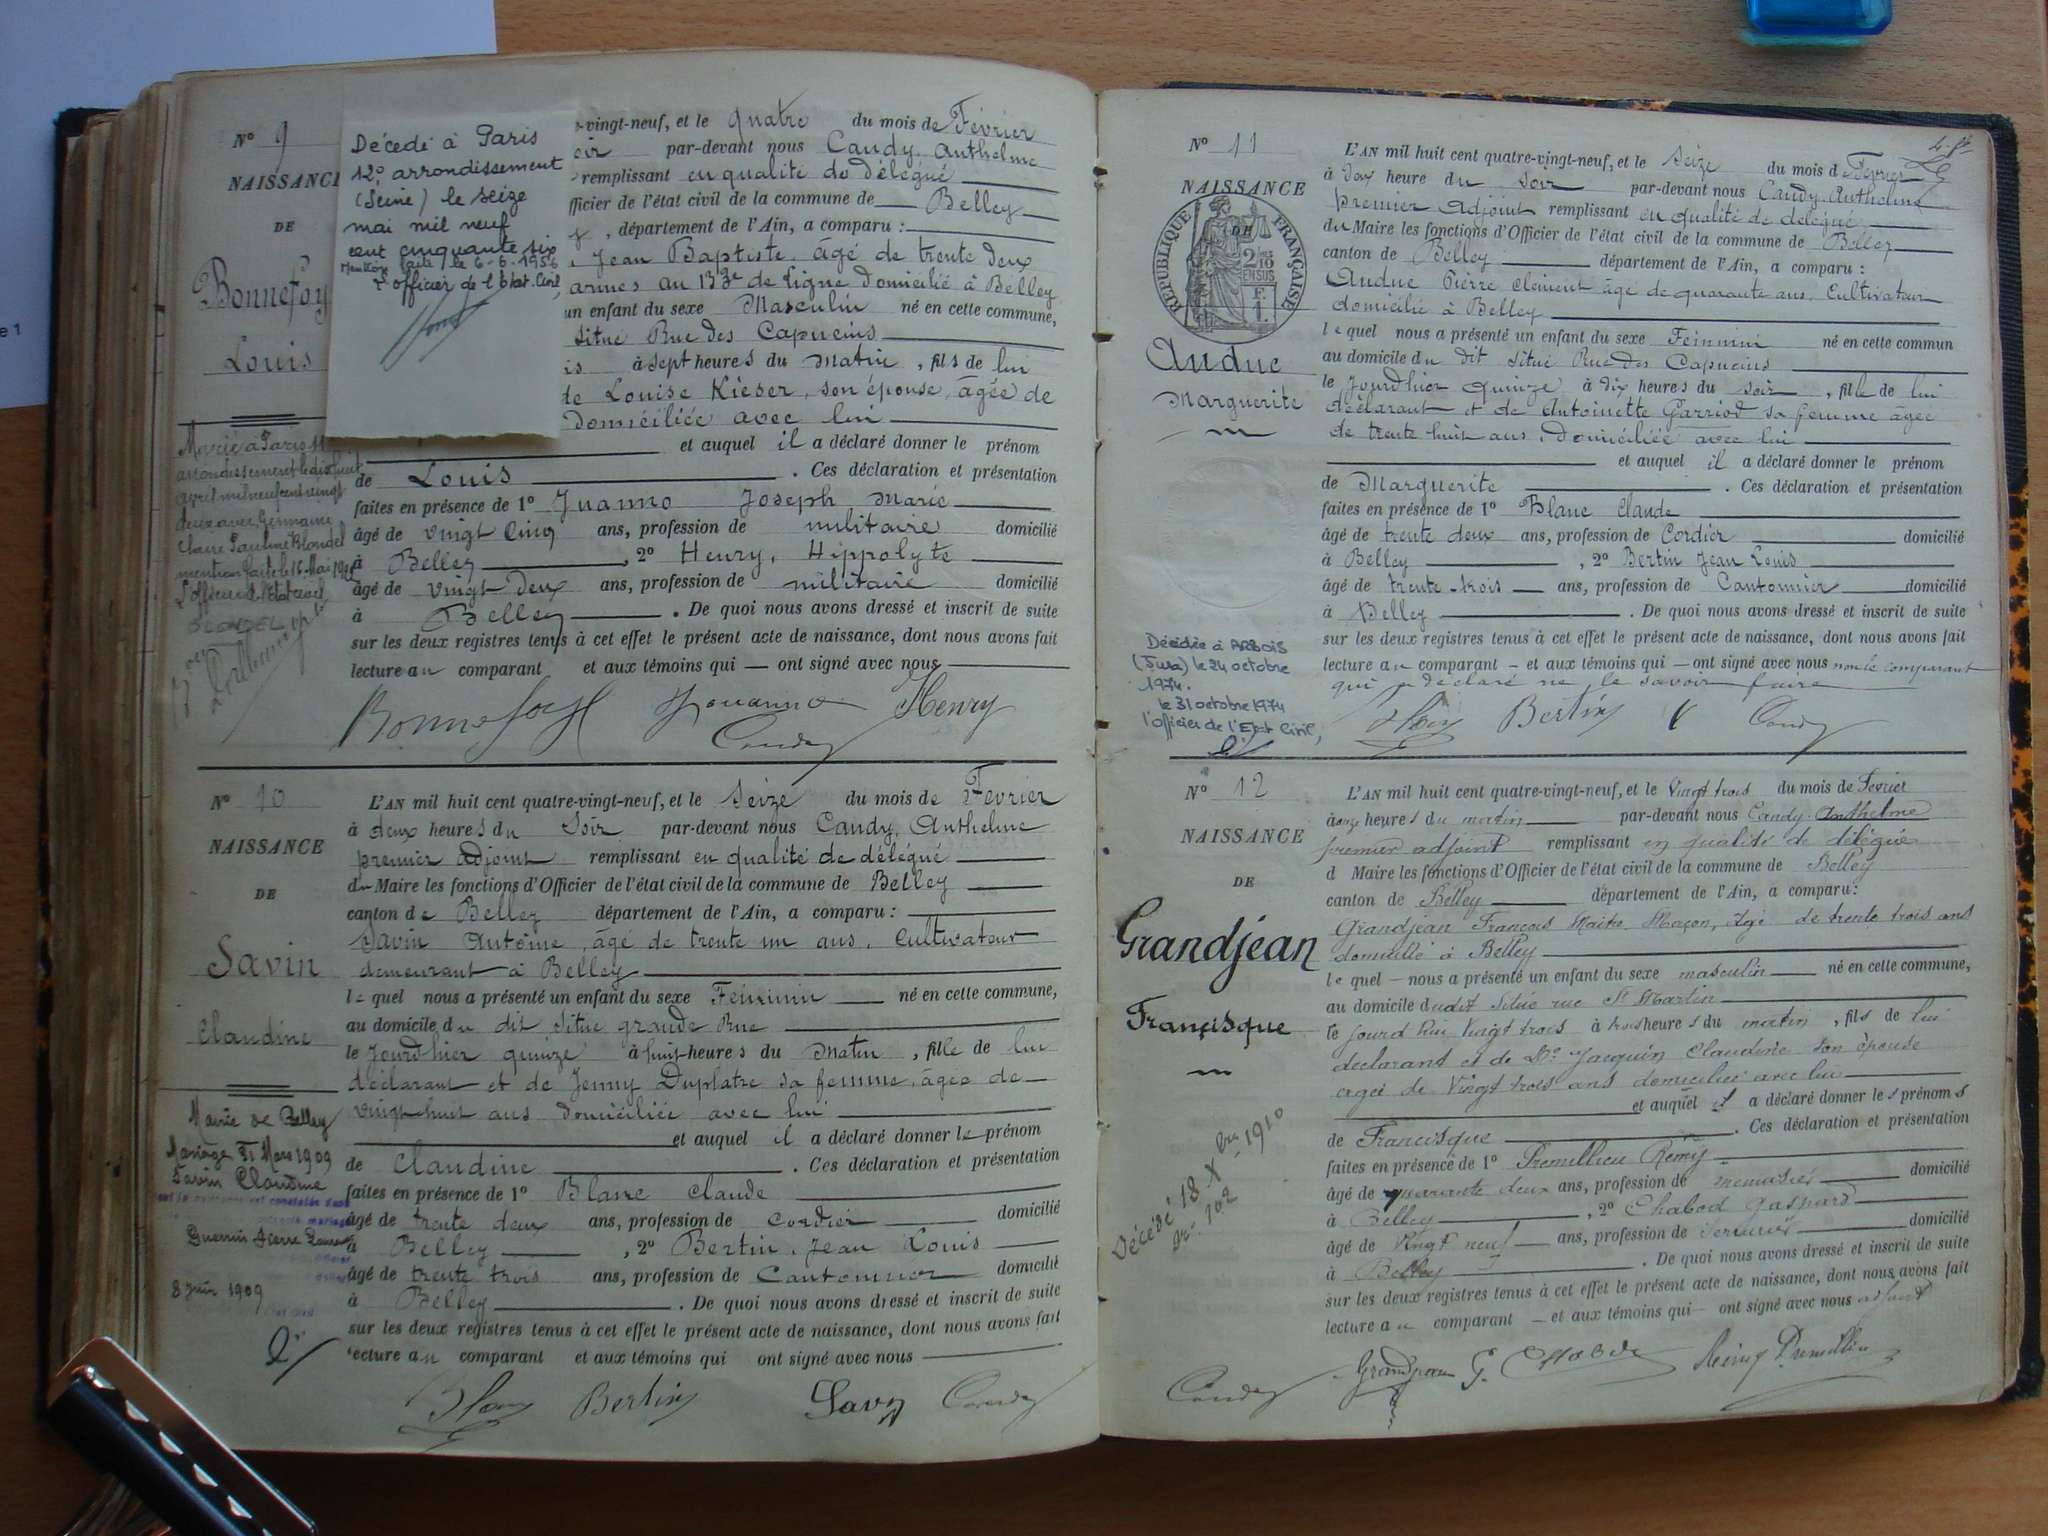 N° 9
NAISSANCE
DE
Bonnefoy
Louis
Décédé à Paris
12e arrondissement
(Seine) le seize
mai mil neuf
cent cinquante six
Mention faite le 6-6-1956
L'officier de l'Etat-Civil,
-vingt-neuf, et le quatre du mois de Février
oir par-devant nous Candy, Anthelme
remplissant en qualité de délégué
officier de l'état civil de la commune de Belley
y, département de l'Ain, a comparu :
Jean Baptiste, âgé de trente deux
armes au 133e de Ligne domicilié à Belley
un enfant du sexe Masculin né en cette commune,
situé Rue des Capucins
is à sept heures du Matin, fils de lui
de Louise Kieser, son épouse, âgée de
domiciliée avec lui
et auquel il a déclaré donner le prénom
de Louis. Ces déclaration et présentation
faites en présence de 1° Juanno Joseph Marie
âgé de vingt cinq ans, profession de militaire domicilié
à Belley, 2° Henry, Hippolyte
âgé de vingt deux ans, profession de militaire domicilié
à Belley. De quoi nous avons dressé et inscrit de suite
sur les deux registres tenus à cet effet le présent acte de naissance, dont nous avons fait
lecture au comparant et aux témoins qui — ont signé avec nous
Marié à Paris
arrondissement le dix huit
avril mil neuf cent vingt
deux avec Germaine
Claire Pauline Blondel
mention faite le 16 Mai
L'officier de l'état civil
Bonnefoy Jouanno Henry
Candy
N° 10
NAISSANCE
DE
Savin
Claudine
L'AN mil huit cent quatre-vingt-neuf, et le Seize du mois de Février
à deux heures du Soir par-devant nous Candy, Anthelme
premier adjoint remplissant en qualité de délégué
du Maire les fonctions d'Officier de l'état civil de la commune de Belley
canton de Belley département de l'Ain, a comparu :
Savin Antoine, âgé de trente un ans, Cultivateur
demeurant à Belley
lequel nous a présenté un enfant du sexe Féminin né en cette commune,
au domicile du dit situé grande Rue
le jourd'hier quinze à huit heures du Matin, fille de lui
déclarant et de Jenny Duplatre sa femme, âgée de
vingt huit ans domiciliée avec lui
et auquel il a déclaré donner le prénom
de Claudine. Ces déclaration et présentation
faites en présence de 1° Blanc Claude
âgé de trente deux ans, profession de Cordier domicilié
à Belley, 2° Bertin, Jean Louis
âgé de trente trois ans, profession de Cantonnier domicilié
à Belley. De quoi nous avons dressé et inscrit de suite
sur les deux registres tenus à cet effet le présent acte de naissance, dont nous avons fait
lecture au comparant et aux témoins qui ont signé avec nous
Mairie de Belley
Mariage 31 Mars 1909
Savin Claudine
8 Juin 1909
Blanc Bertin Savin Candy
N° 11
NAISSANCE
DE
RÉPUBLIQUE FRANÇAISE
Anduc
Marguerite
L'AN mil huit cent quatre-vingt-neuf, et le Seize du mois d Février
à deux heure du Soir par-devant nous Candy, Anthelme
premier Adjoint remplissant en qualité de délégué
du Maire les fonctions d'Officier de l'état civil de la commune de Belley
canton de Belley département de l'Ain, a comparu :
Anduc Pierre Clément âgé de quarante ans, Cultivateur
domicilié à Belley
lequel nous a présenté un enfant du sexe Féminin né en cette commun
au domicile du dit situé Rue des Capucins
le jourd'hier quinze à dix heures du soir, fille de lui
déclarant et de Antoinette Parriod sa femme âgée
de trente huit ans, domiciliée avec lui
et auquel il a déclaré donner le prénom
de Marguerite. Ces déclaration et présentation
faites en présence de 1° Blanc Claude
âgé de trente deux ans, profession de Cordier domicilié
à Belley, 2° Bertin Jean Louis
âgé de trente-trois ans, profession de Cantonnier domicilié
à Belley. De quoi nous avons dressé et inscrit de suite
sur les deux registres tenus à cet effet le présent acte de naissance, dont nous avons fait
lecture au comparant - et aux témoins qui — ont signé avec nous non le comparant
qui a déclaré ne le savoir faire
Décédée à ARBOIS
(Jura) le 24 octobre
1974.
le 31 octobre 1974
l'Officier de l'Etat Civil,
Blanc Bertin Candy
N° 12
NAISSANCE
DE
Grandjean
Francisque
L'AN mil huit cent quatre-vingt-neuf, et le Vingt trois du mois de Fevrier
à onze heures du matin par-devant nous Candy Anthelme
premier adjoint remplissant en qualité de délégué
d Maire les fonctions d'Officier de l'état civil de la commune de Belley
canton de Belley département de l'Ain, a comparu:
Grandjean François Maitre Maçon, âgé de trente trois ans
domicilié à Belley
lequel — nous a présenté un enfant du sexe masculin né en cette commune,
au domicile dudit situé rue St Martin
le jourd'hui vingt trois à trois heures du matin, fils de lui
déclarant et de De Jacquin Claudine son épouse
agée de Vingt trois ans domiciliée avec lui
et auquel il a déclaré donner les prénoms
de Francisque. Ces déclaration et présentation
faites en présence de 1° Premillieu Rémy
âgé de quarante deux ans, profession de menuisier domicilié
à Belley, 2° Chabod Gaspard
âgé de vingt neuf ans, profession de Serrurier domicilié
à Belley. De quoi nous avons dressé et inscrit de suite
sur les deux registres tenus à cet effet le présent acte de naissance, dont nous avons fait
lecture au comparant — et aux témoins qui — ont signé avec nous adjoint
Décédé 18 Xbre 1910
N° 102
Candy Grandjean G. Chabod Rémy Premillieu